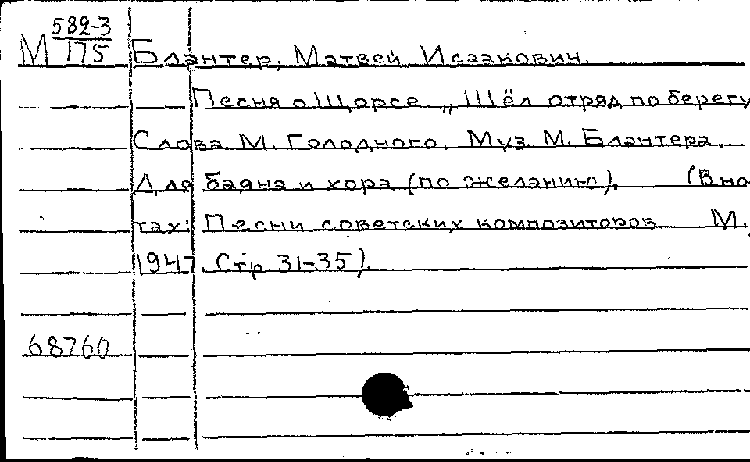 589-3
М 175 Блантер, Матвей Исаакович.
Песня о Щорсе „Шёл отряд по берегу
Слова М. Голодного. Муз. М. Блантера.
Для баяна и хора (по желанию). (В но
тах: Песни советских композиторов М.,
1947. Стр 31-35).
68760